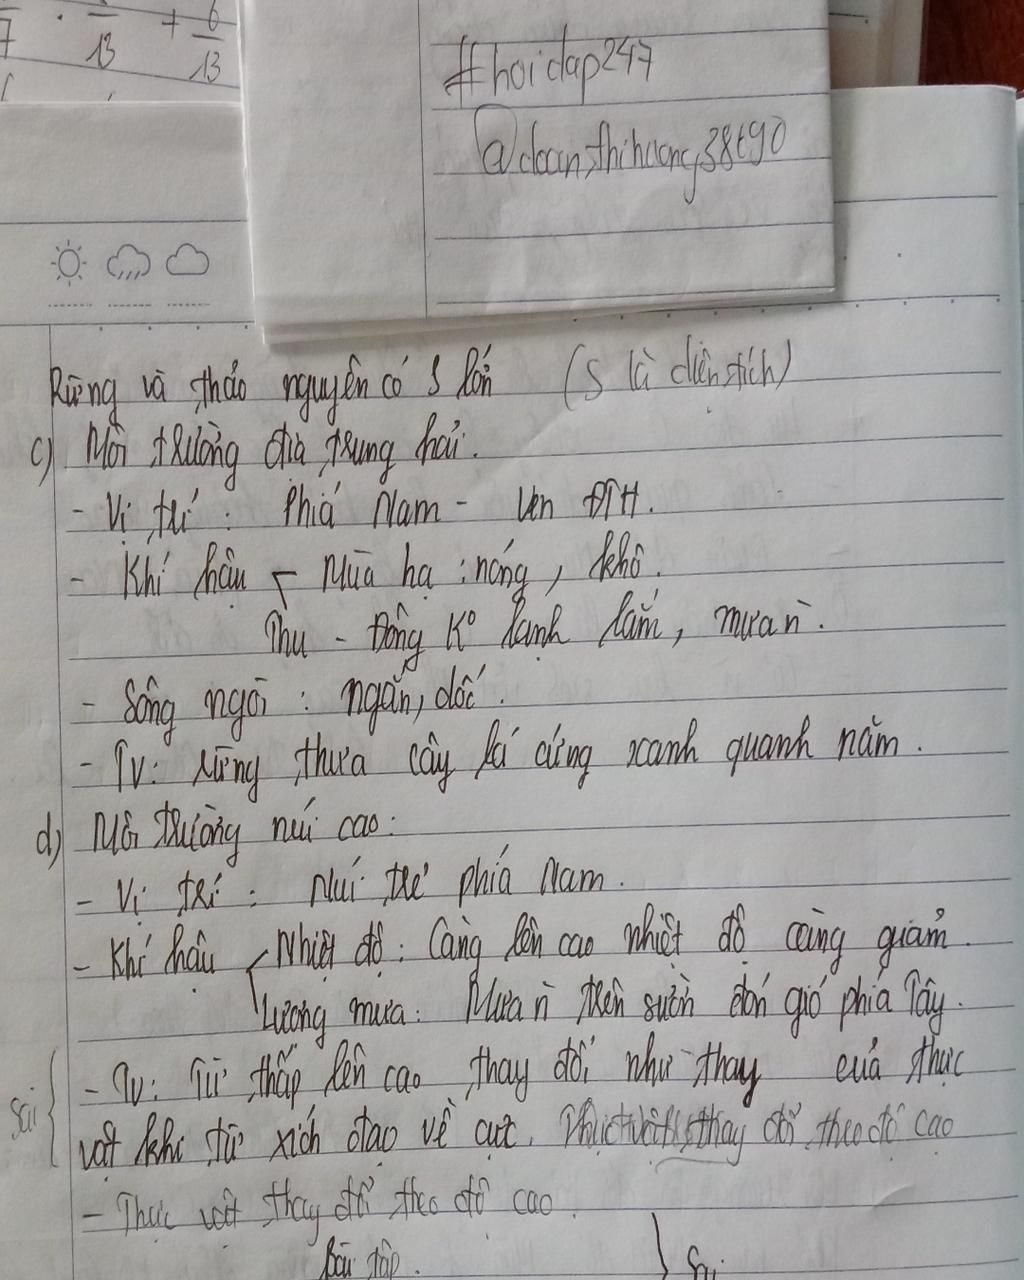 7 . 13 + 6/13
#hoidap247
@doanthihuong38690
Rừng và thảo nguyên có S lớn (S là diện tích)
c) Môi trường địa trung hải.
- Vị trí : Phía Nam - ven ĐTH.
- Khí hậu Mùa hạ : nóng, khô.
Thu - Đông K° lạnh lắm, mưa n`.
- Sông ngòi : ngắn, dốc.
- TV: rừng thưa cây lá cứng xanh quanh năm.
d) Môi trường núi cao:
- Vị trí : Núi trẻ phía Nam.
- Khí hậu Nhiệt độ : Càng lên cao nhiệt độ càng giảm.
Lượng mưa : Mưa n` trên sườn đón gió phía Tây.
- TV: Từ thấp lên cao thay đổi như thay của thực
sai
vật khi từ xích đạo về cực. Thực vật thay đổi theo độ cao
- Thực vật thay đổi theo độ cao.
Bài tập.